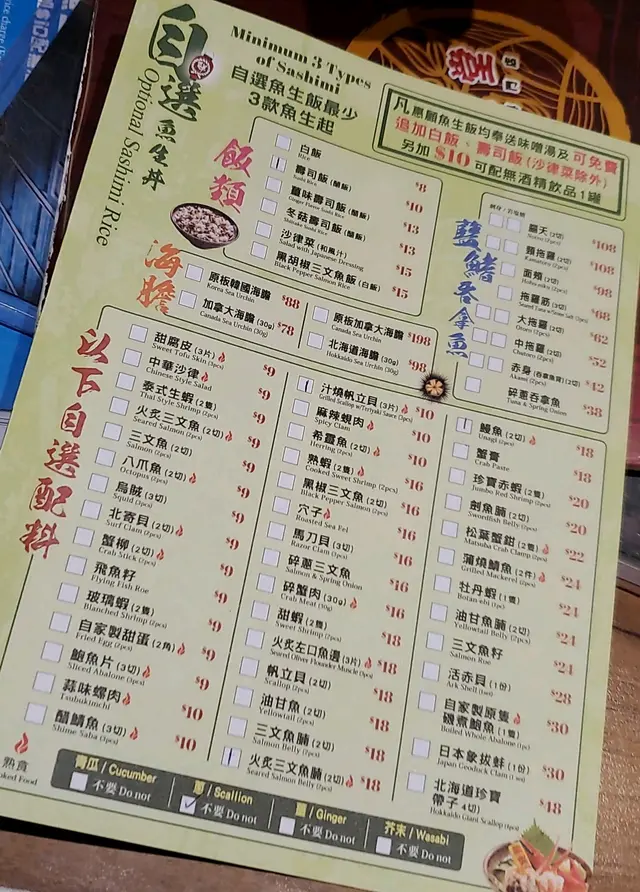 自選魚生丼
Optional Sashimi Rice
Minimum 3 Types
of Sashimi
自選魚生飯最少
3款魚生起
凡惠顧魚生飯均奉送味噌湯及可免費
追加白飯、壽司飯(沙律菜除外)
另加$10可配無酒精飲品1罐
飯類
白飯
Rice
$8
壽司飯(醋飯)
Sushi Rice
$10
薑味壽司飯(醋飯)
Ginger Flavor Sushi Rice
$13
冬菇壽司飯(醋飯)
Shiitake Sushi Rice
$13
沙律菜(和風汁)
Salad with Japanese Dressing
$15
黑胡椒三文魚飯(白飯)
Black Pepper Salmon Rice
$15
海膽
原板韓國海膽
Korea Sea Urchin
$88
加拿大海膽(30g)
Canada Sea Urchin (30g)
$78
原板加拿大海膽
Canada Sea Urchin
$198
北海道海膽(30g)
Hokkaido Sea Urchin (30g)
$98
藍鰭吞拿魚
腦天(2切)
$108
$108
面頰(2切)
$98
拖羅筋(3切)
$68
大拖羅(2切)
Otoro (2pcs)
$62
中拖羅(2切)
Chutoro (2pcs)
$52
赤身(吞拿魚背)(2切)
Akami (2pcs)
$42
碎蔥吞拿魚
Tuna & Spring Onion
$38
以下自選配料
甜腐皮(3片)
Sweet Tofu Skin (3pcs)
$9
中華沙律
Chinese Style Salad
$9
泰式生蝦(2隻)
Thai Style Shrimp (2pcs)
$9
火炙三文魚(2切)
Seared Salmon (2pcs)
$9
三文魚(2切)
Salmon (2pcs)
$9
八爪魚(2切)
Octopus (2pcs)
$9
烏賊(3切)
Squid (3pcs)
$9
北寄貝(2切)
Surf Clam (2pcs)
$9
蟹柳(2切)
Crab Stick (2pcs)
$9
飛魚籽
Flying Fish Roe
$9
玻璃蝦(2隻)
Blanched Shrimp (2pcs)
$9
自家製甜蛋(2角)
Fried Egg (2pcs)
$9
鮑魚片(3切)
Sliced Abalone (3pcs)
$9
蒜味螺肉
Tsubukimchi
$10
醋鯖魚(3切)
Shime Saba (3pcs)
$10
汁燒帆立貝(3片)
Grilled Scallop w/Teriyaki Sauce (3pcs)
$10
麻辣蜆肉
Spicy Clam
$10
希靈魚(2切)
Herring (2pcs)
$10
熟蝦(2隻)
Cooked Sweet Shrimp (2pcs)
$16
黑椒三文魚(2切)
Black Pepper Salmon (2pcs)
$16
穴子
Roasted Sea Eel
$16
馬刀貝(3切)
Razor Clam (3pcs)
$16
碎蔥三文魚
Salmon & Spring Onion
$16
碎蟹肉(30g)
Crab Meat (30g)
$16
甜蝦(2隻)
Sweet Shrimp (2pcs)
$18
火炙左口魚邊(3片)
Seared Oliver Flounder Muscle (3pcs)
$18
帆立貝(2切)
Scallop (2pcs)
$18
油甘魚(2切)
Yellowtail (2pcs)
$18
三文魚腩(2切)
Salmon Belly (2pcs)
$18
火炙三文魚腩(2切)
Seared Salmon Belly (2pcs)
$18
鰻魚(2切)
Unagi (2pcs)
$18
蟹膏
Crab Paste
$18
珍寶赤蝦(2隻)
Jumbo Red Shrimp (2pcs)
$20
劍魚腩(2切)
Swordfish Belly (2pcs)
$20
松葉蟹鉗(2隻)
Matsuba Crab Clamp (2pcs)
$22
蒲燒鯖魚(2件)
Grilled Mackerel (2pcs)
$24
牡丹蝦(1隻)
Botan-ebi (1pc)
$24
油甘魚腩(2切)
Yellowtail Belly (2pcs)
$24
三文魚籽
Salmon Roe
$24
活赤貝(1份)
Ark Shell (1set)
$28
自家製原隻
磯煮鮑魚(1隻)
Boiled Whole Abalone (1pc)
$30
日本象拔蚌(1份)
Japan Geoduck Clam (1set)
$30
北海道珍寶
帶子4切)
Hokkaido Giant Scallop (4pcs)
$48
熟食
oked Food
青瓜/Cucumber
不要 Do not
蔥/Scallion
不要 Do not
薑/Ginger
不要 Do not
芥末/Wasabi
不要 Do not